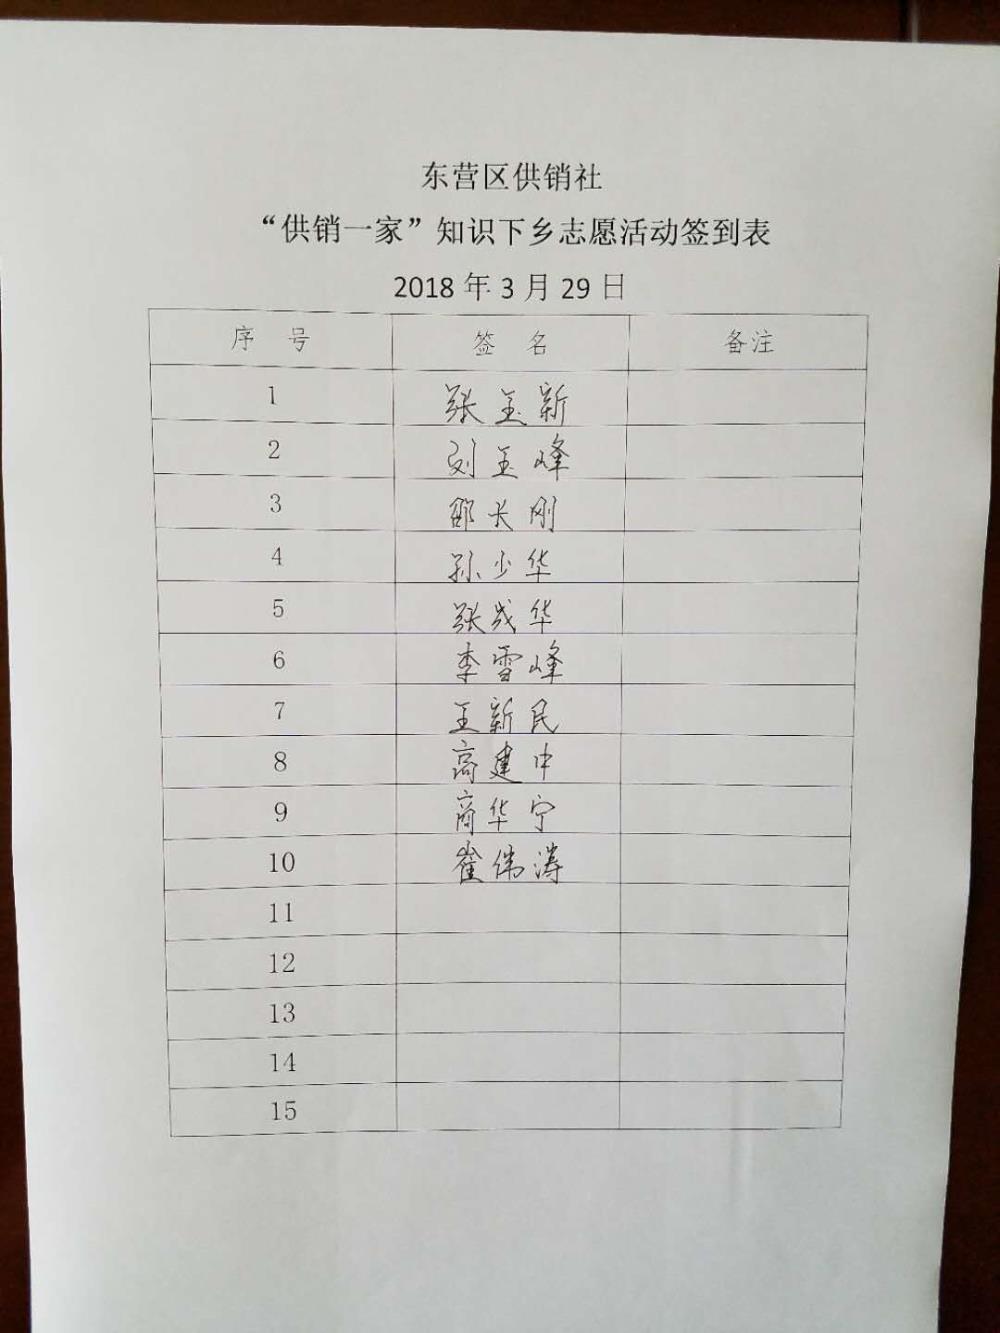 东营区供销社
“供销一家”知识下乡志愿活动签到表
2018 年 3 月 29 日
序 号 签 名 备注
1 张玉新
2 刘玉峰
3 邵长刚
4 孙少华
5 张成华
6 李雪峰
7 王新民
8 高建中
9 商华宁
10 崔伟涛
11
12
13
14
15